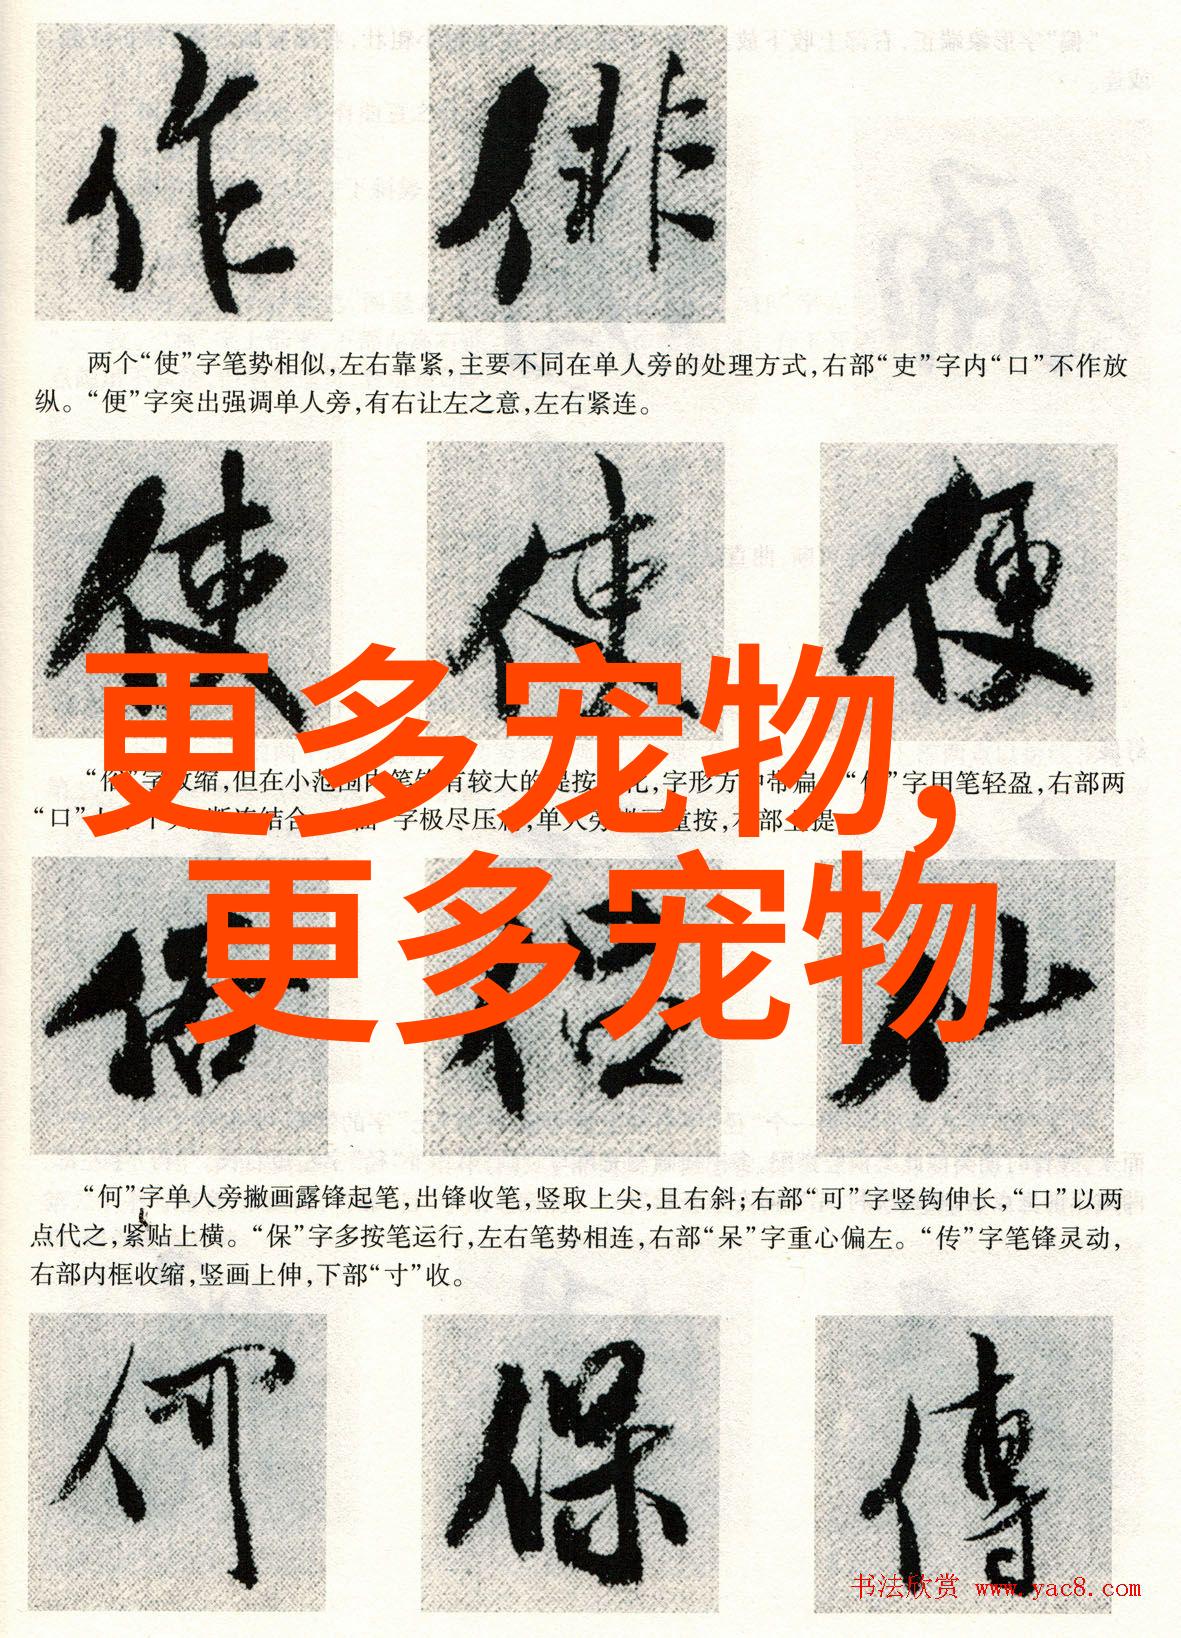 作 俳
两个“使”字笔势相似,左右靠紧,主要不同在单人旁的处理方式,右部“吏”字内“口”不作放
纵。“便”字突出强调单人旁,有右让左之意,左右紧连。
使 使 便
更多宠物,
“俗”字收缩,但在小范围内笔锋有较大的提按 化,字形方中带扁 “ ”字用笔轻盈,右部两
“口” 断连结合 字极尽压 ,单人旁撇画重按, 部上提
更多宠物
俗 仙
“何”字单人旁撇画露锋起笔,出锋收笔,竖取上尖,且右斜;右部“可”字竖钩伸长,“口”以两
点代之,紧贴上横。“保”字多按笔运行,左右笔势相连,右部“呆”字重心偏左。“传”字笔锋灵动,
右部内框收缩,竖画上伸,下部“寸”收。
何 保 傳
书法欣赏 www.yac8.com